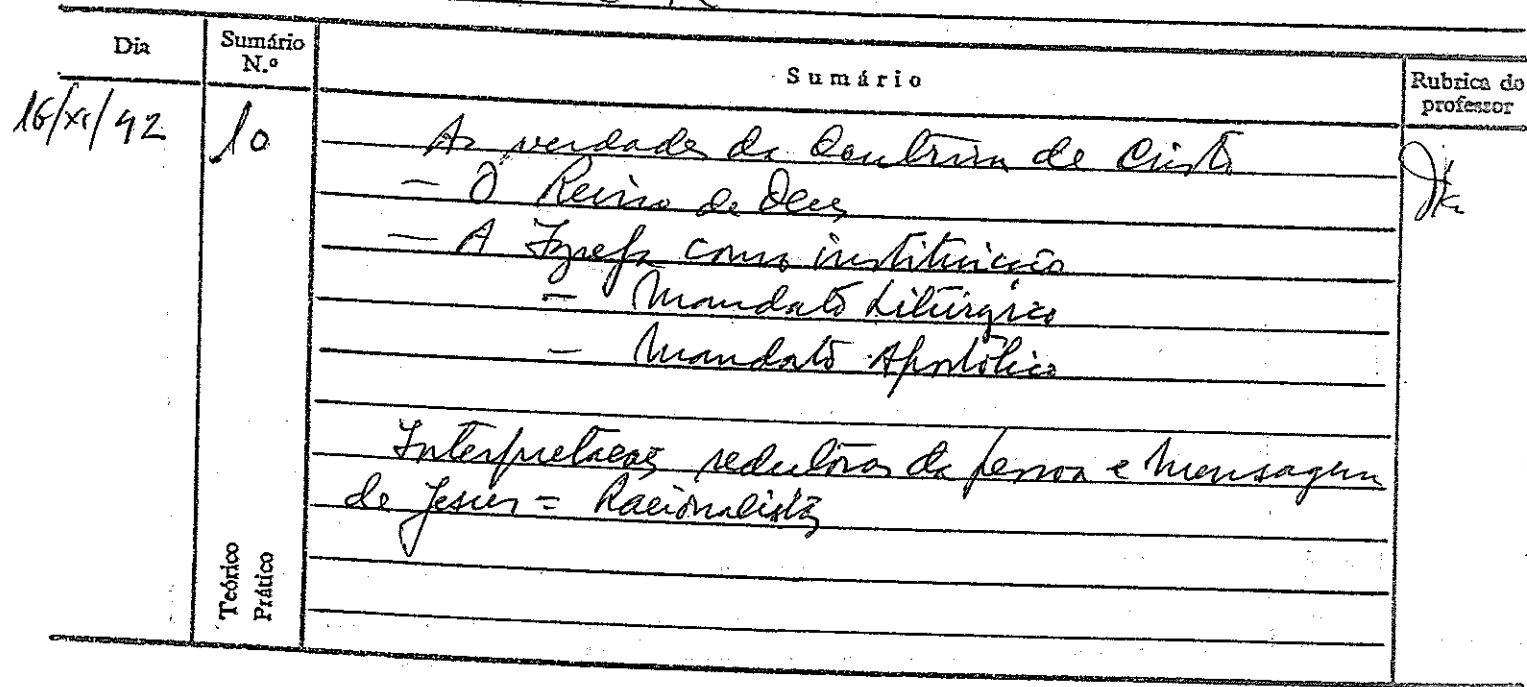 Dia Sumário N.º Sumário Rubrica do professor
16/XI/92 10 As verdades da Doutrina de Cristo
- O Reino de Deus
- A Igreja como instituição
- Mandato Litúrgico
- Mandato Apostólico
Interpretações redutoras da pessoa e mensagem
de Jesus = Racionalistas
Teórico
Prático